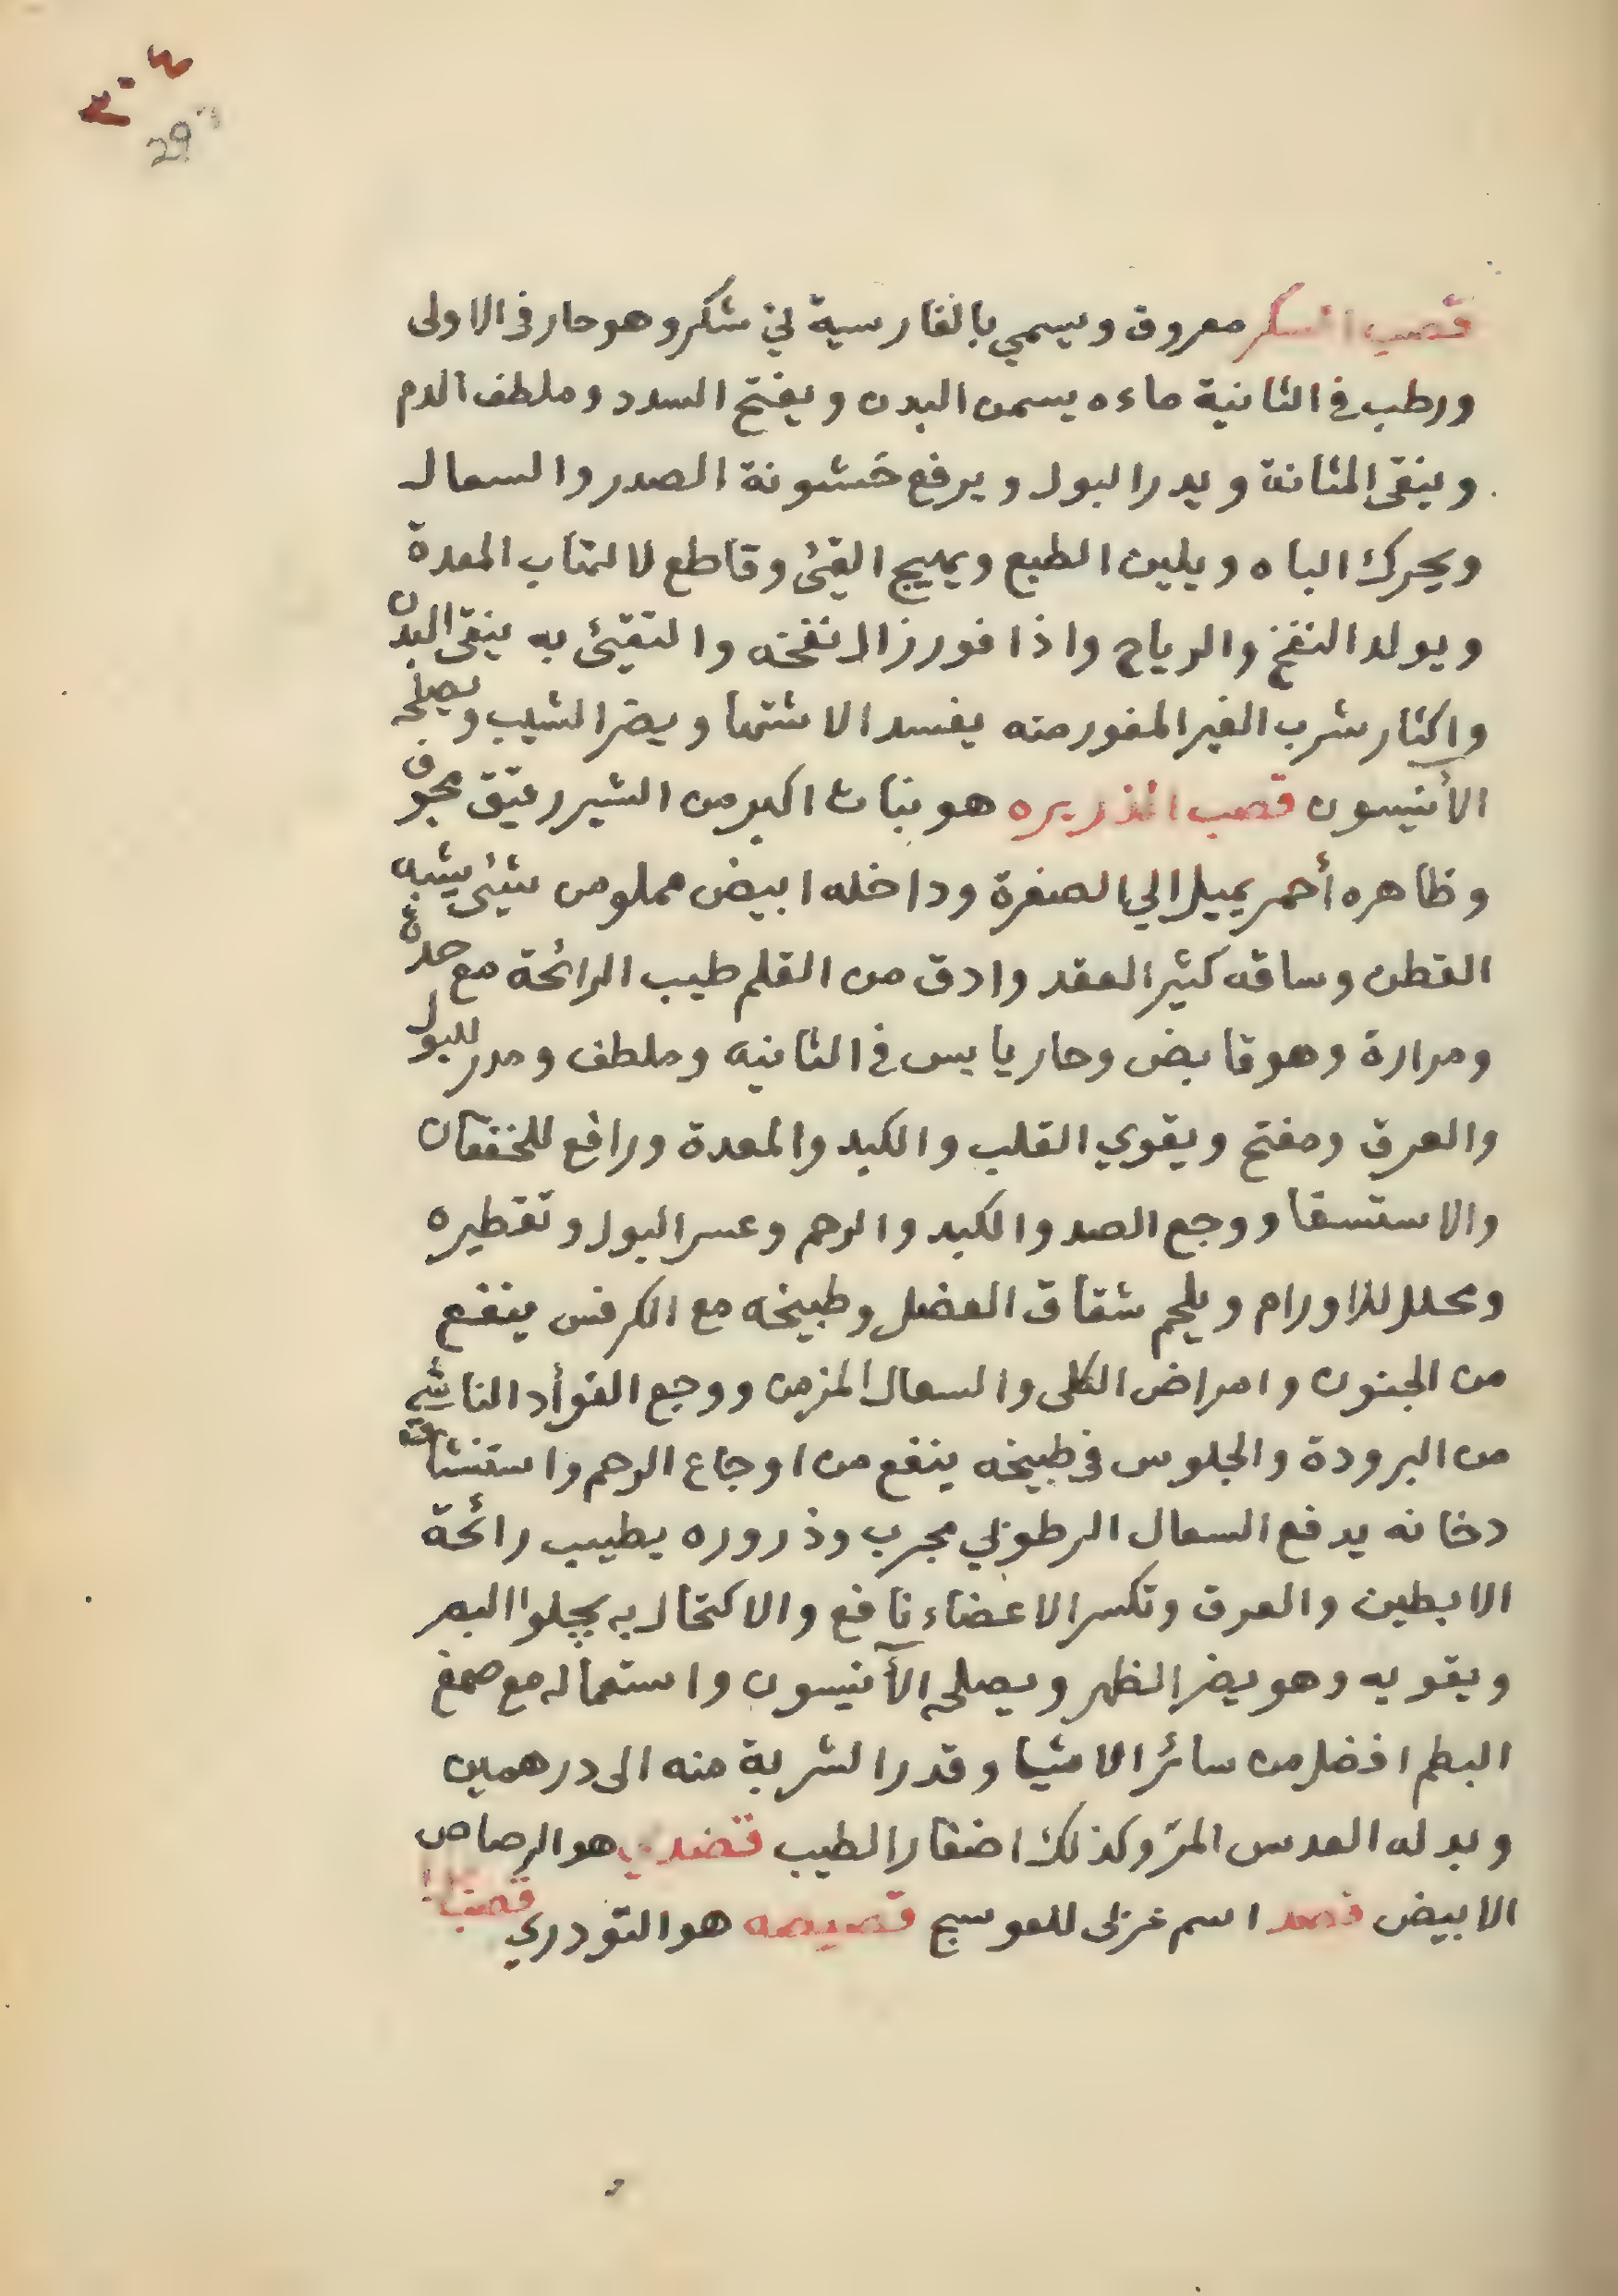 ٣٠٤
29
قصب السكر معروف ويسمي بالفارسية ني شكر وهو حار في الاولى
ورطب في الثانية ماءه يسمن البدن ويفتح السدد وملطف الدم
وينقى المثانة ويدر البول ويرفع خشونة الصدر والسعال
ويحرك الباه ويلين الطبع ويهيج القيئ وقاطع لالتهاب المعدة
ويولد النفخ والرياح واذا فور زال نفخه والتقيئ به ينقى البدن
واكثار شرب الغير المفور منه يفسد الاشتها ويضر الشيب ويصلحه
الأنيسون قصب الذريره هو نبات اكبر من الشير رقيق مجوف
وظاهره أحمر يميل الي الصفرة وداخله ابيض مملو من شيئ يشبه
القطن وساقه كثير العقد وادق من القلم طيب الرائحة مع حدة
ومرارة وهو قابض وحار يابس في الثانيه وملطف ومدر للبول
والعرق ومفتح ويقوي القلب والكبد والمعدة ورافع للخفقان
والاستسقا ووجع الصد والكبد والرحم وعسر البول وتقطيره
ومحلل للاورام ويلحم شقاق العضل وطبيخه مع الكرفس ينفع
من الجنون وامراض الكلى والسعال المزمن ووجع الفوأد الناشي
من البرودة والجلوس في طبيخه ينفع من اوجاع الرحم واستنشاق
دخانه يدفع السعال الرطوبي مجرب وذروره يطيب رائحة
الابطين والعرق وتكسر الاعضاء نافع والاكتحال به يجلوا البصر
ويقويه وهو يضر الظهر ويصلحه الأنيسون واستعماله مع صمغ
البطم افضل من سائر الاشيا وقدر الشربة منه الى درهمين
وبدله العدس المرّ وكذلك اضفار الطيب هو الرصاص
الابيض قصد اسم غزلى للعوسج قصيصه هو التودري